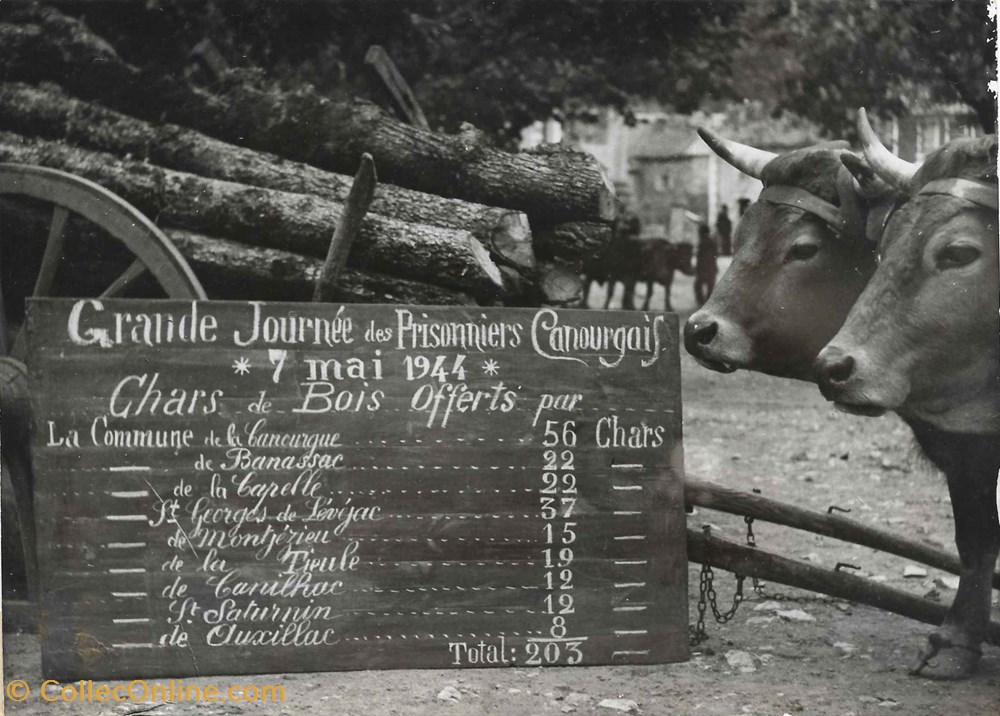 Grande Journée des Prisonniers Canourgais
* 7 mai 1944 *
Chars de Bois Offerts par
La Commune de la Canourgue ........ 56 Chars
— de Banassac ........ 22 —
— de la Capelle ........ 22 —
— St Georges de Lévéjac ........ 37 —
— de Montjézieu ........ 15 —
— de la Tieule ........ 19 —
— de Canilhac ........ 12 —
— St Saturnin ........ 12 —
— de Auxillac ........ 8 —
Total: 203 —
© CollecOnline.com